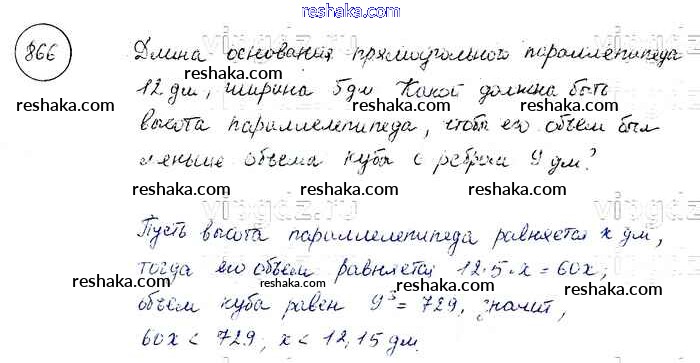 reshaka.com
866
Длина основания прямоугольного параллепипеда
reshaka.com
12 дм, ширина 5 дм Какой должна быть
reshaka.com reshaka.com reshaka.com
высота параллелепипеда, чтобы его объем был
меньше объема куба с ребром 9 дм?
reshaka.com reshaka.com reshaka.com
Пусть высота параллелепипеда равняется х дм,
reshaka.com reshaka.com reshaka.com
тогда его объем равняется 12·5·х = 60х;
объем куба равен 9³ = 729, значит,
reshaka.com reshaka.com reshaka.com
60х < 729; х < 12,15 дм.
reshaka.com